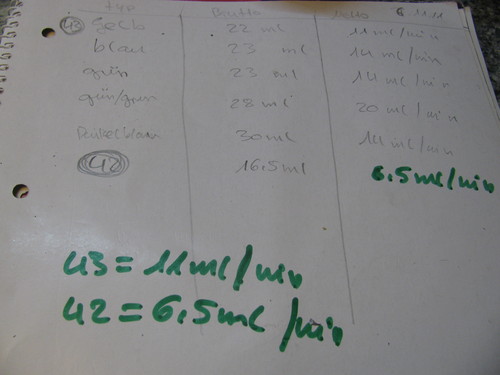 Typ Brutto
43 Gelb 22 ml 11 ml/min
blau 23 ml 14 ml/min
grün 23 ml 14 ml/min
grün/grau 28 ml 20 ml/min
Dunkelblau 30 ml 14 ml/min
42 16.5 ml 6.5 ml/min
43 = 11 ml/min
42 = 6,5 ml/min